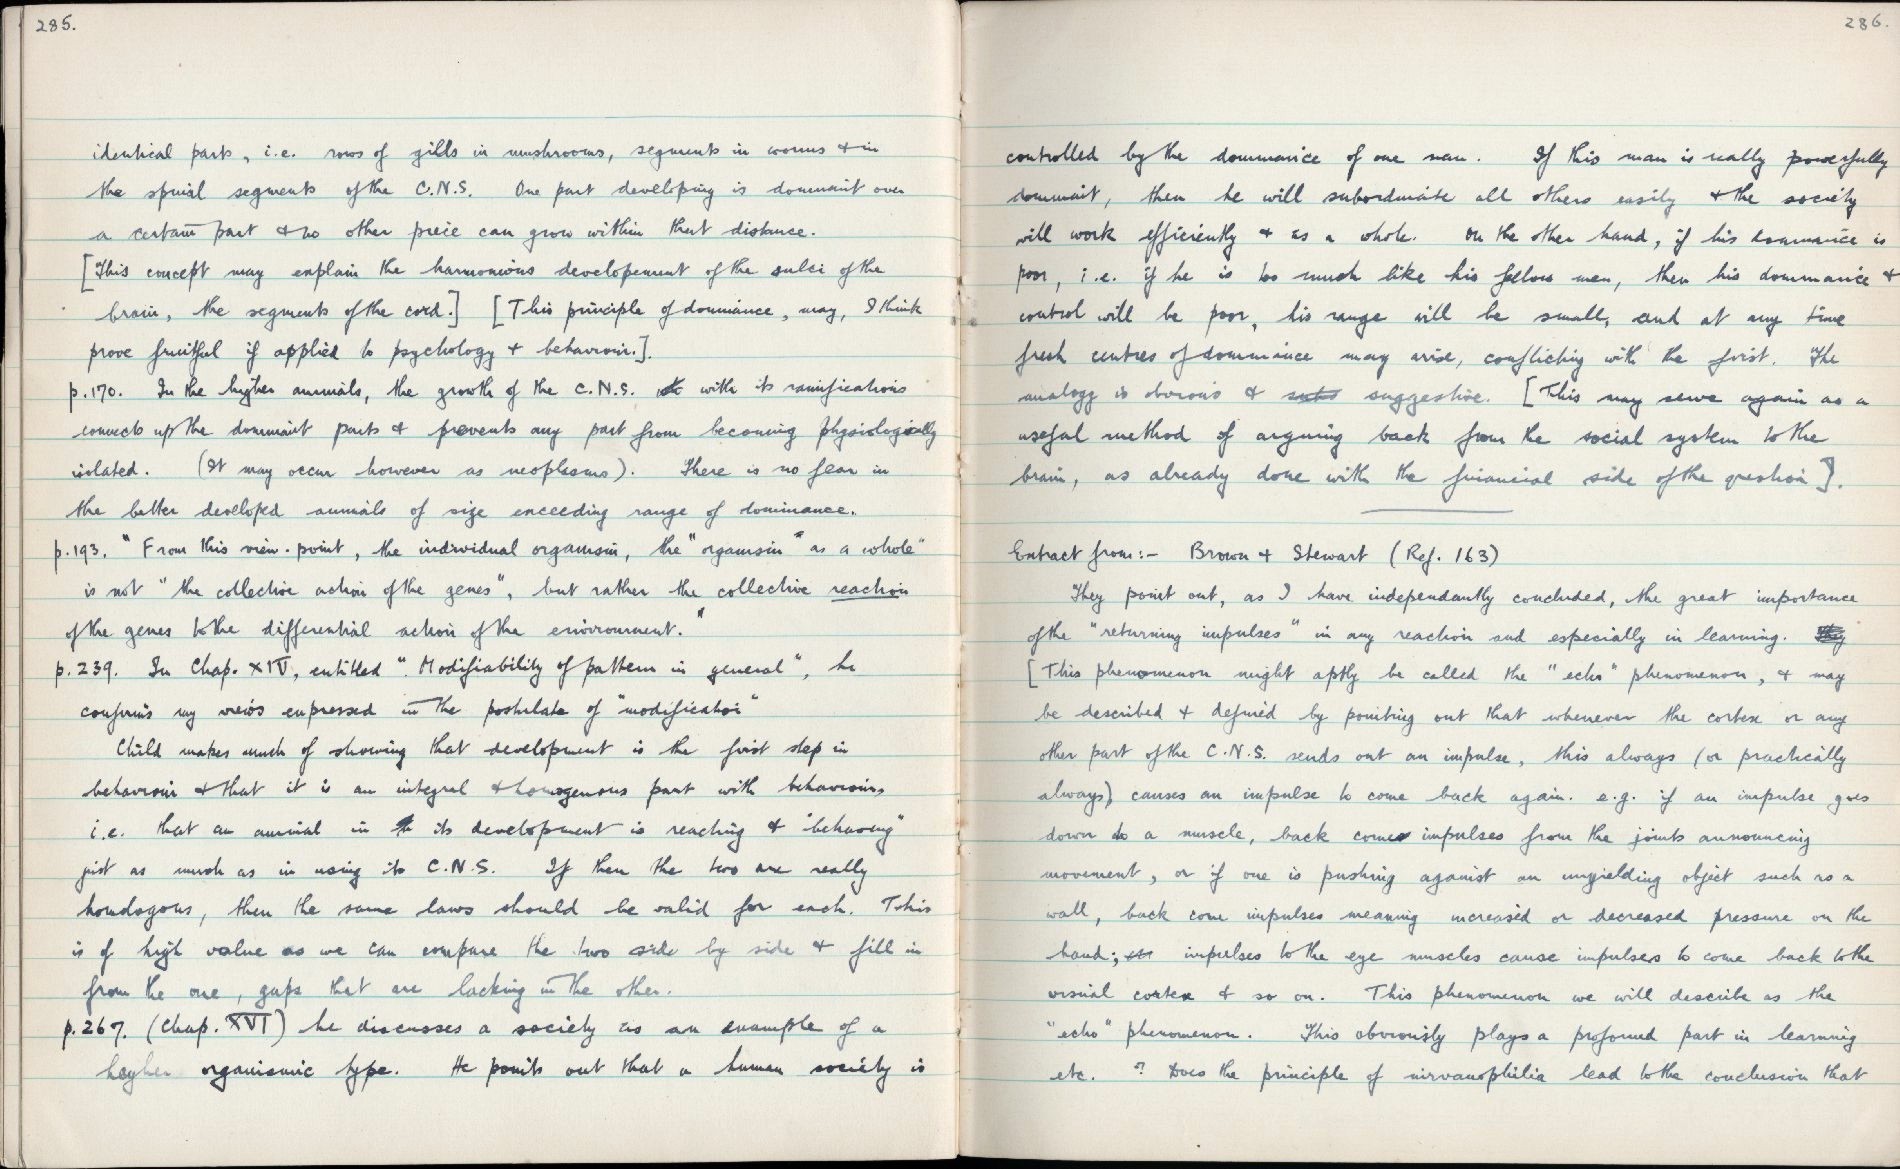 285.
identical parts, i.e. rows of gills in mushrooms, segments in worms & in
the spinal segments of the C.N.S. One part developing is dominant over
a certain part & no other piece can grow within that distance.
[This concept may explain the harmonious developement of the sulci of the
brain, the segments of the cord.] [This principle of dominance, may, I think
prove fruitful if applied to psychology & behaviour.].
p.170. In the higher animals, the growth of the C.N.S. with its ramifications
connects up the dominant parts & prevents any part from becoming physiologically
isolated. (It may occur however as neoplasms). There is no fear in
the better developed animals of size exceeding range of dominance.
p.193. "From this view-point, the individual organism, the "organism" as a whole"
is not "the collective action of the genes", but rather the collective reaction
of the genes to the differential action of the environment."
p.239. In Chap. XIV, entitled "Modifiability of pattern in general", he
confirms my views expressed in the postulate of "modification"
Child makes much of showing that development is the first step in
behaviour & that it is an integral & homogenous part with behaviour,
i.e. that an animal in its development is reacting & "behaving"
just as much as in using its C.N.S. If then the two are really
homologous, then the same laws should be valid for each. This
is of high value as we can compare the two side by side & fill in
from the one, gaps that are lacking in the other.
p.267. (Chap. XVI) he discusses a society as an example of a
higher organismic type. He points out that a human society is
286.
controlled by the dominance of one man. If this man is really powerfully
dominant, then he will subordinate all others easily & the society
will work efficiently & as a whole. On the other hand, if his dominance is
poor, i.e. if he is too much like his fellow men, then his dominance &
control will be poor, his range will be small, and at any time
fresh centres of dominance may arise, conflicting with the first. The
analogy is obvious & suggestive. [This may serve again as a
useful method of arguing back from the social system to the
brain, as already done with the financial side of the question].
Extract from:- Brown & Stewart (Ref. 163)
They point out, as I have independantly concluded, the great importance
of the "returning impulses" in any reaction and especially in learning. They
[This phenomenon might aptly be called the "echo" phenomenon, & may
be described & defined by pointing out that whenever the cortex or any
other part of the C.N.S. sends out an impulse, this always (or practically
always) causes an impulse to come back again. e.g. if an impulse goes
down to a muscle, back comes impulses from the joints announcing
movement, or if one is pushing against an unyielding object such as a
wall, back come impulses meaning increased or decreased pressure on the
hand; impulses to the eye muscles cause impulses to come back to the
visual cortex & so on. This phenomenon we will describe as the
"echo" phenomenon. This obviously plays a profound part in learning
etc. ? Does the principle of nirvanophilia lead to the conclusion that